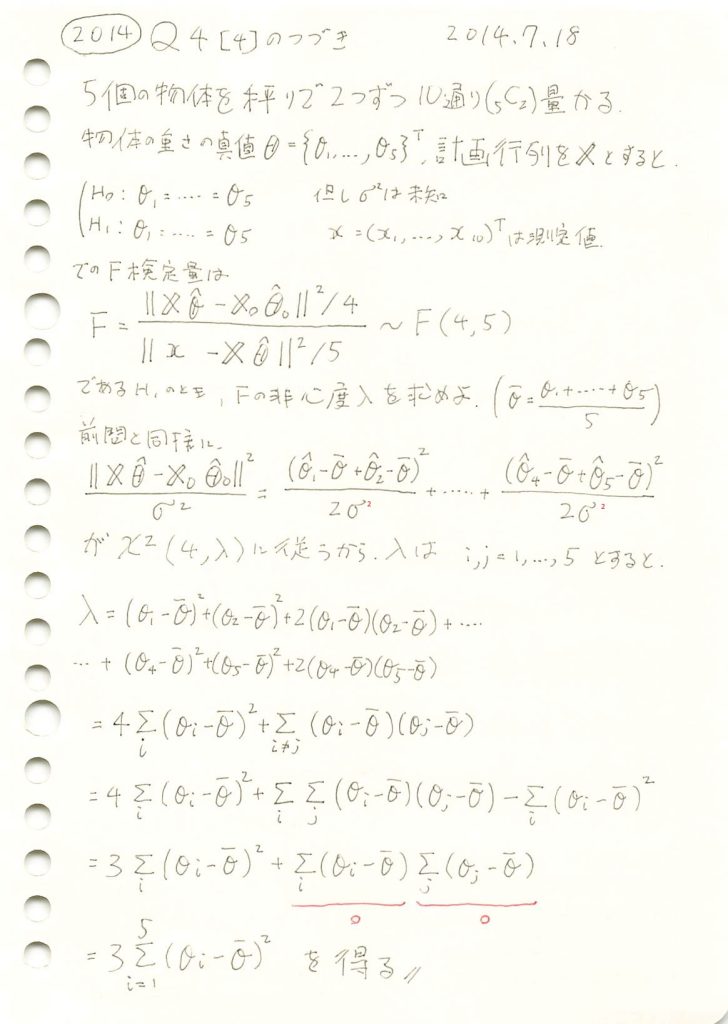 2014 Q4[4]のつづき 2014.7.18
5個の物体を秤りで2つずつ10通り(₅C₂)量かる.
物体の重さの真値θ={θ₁,…,θ₅}ᵀ,計画行列をXとすると.
H₀:θ₁=‥‥=θ₅ 但しσ²は未知
H₁:θ₁=‥‥=θ₅ x=(x₁,…,x₁₀)ᵀは測定値
でのF検定量は
F=‖Xθ̂-X₀θ̂₀‖²/4 / ‖x-Xθ̂‖²/5 ~ F(4,5)
であるH₁のとき,Fの非心度λを求めよ.(θ̄=θ₁+‥‥+θ₅/5)
前問と同様に、
‖Xθ̂-X₀θ̂₀‖²/σ² = (θ̂₁-θ̄+θ̂₂-θ̄)²/2σ² +‥‥+ (θ̂₄-θ̄+θ̂₅-θ̄)²/2σ²
がχ²(4,λ)に従うから.λは i,j=1,…,5とすると.
λ=(θ₁-θ̄)²+(θ₂-θ̄)²+2(θ₁-θ̄)(θ₂-θ̄)+‥‥
‥+(θ₄-θ̄)²+(θ₅-θ̄)²+2(θ₄-θ̄)(θ₅-θ̄)
=4Σᵢ(θᵢ-θ̄)²+Σ_{i≠j}(θᵢ-θ̄)(θⱼ-θ̄)
=4Σᵢ(θᵢ-θ̄)²+ΣᵢΣⱼ(θᵢ-θ̄)(θⱼ-θ̄)-Σᵢ(θᵢ-θ̄)²
=3Σᵢ(θᵢ-θ̄)²+Σᵢ(θᵢ-θ̄)Σⱼ(θⱼ-θ̄)
0 0
=3Σ_{i=1}^{5}(θᵢ-θ̄)² を得る〃